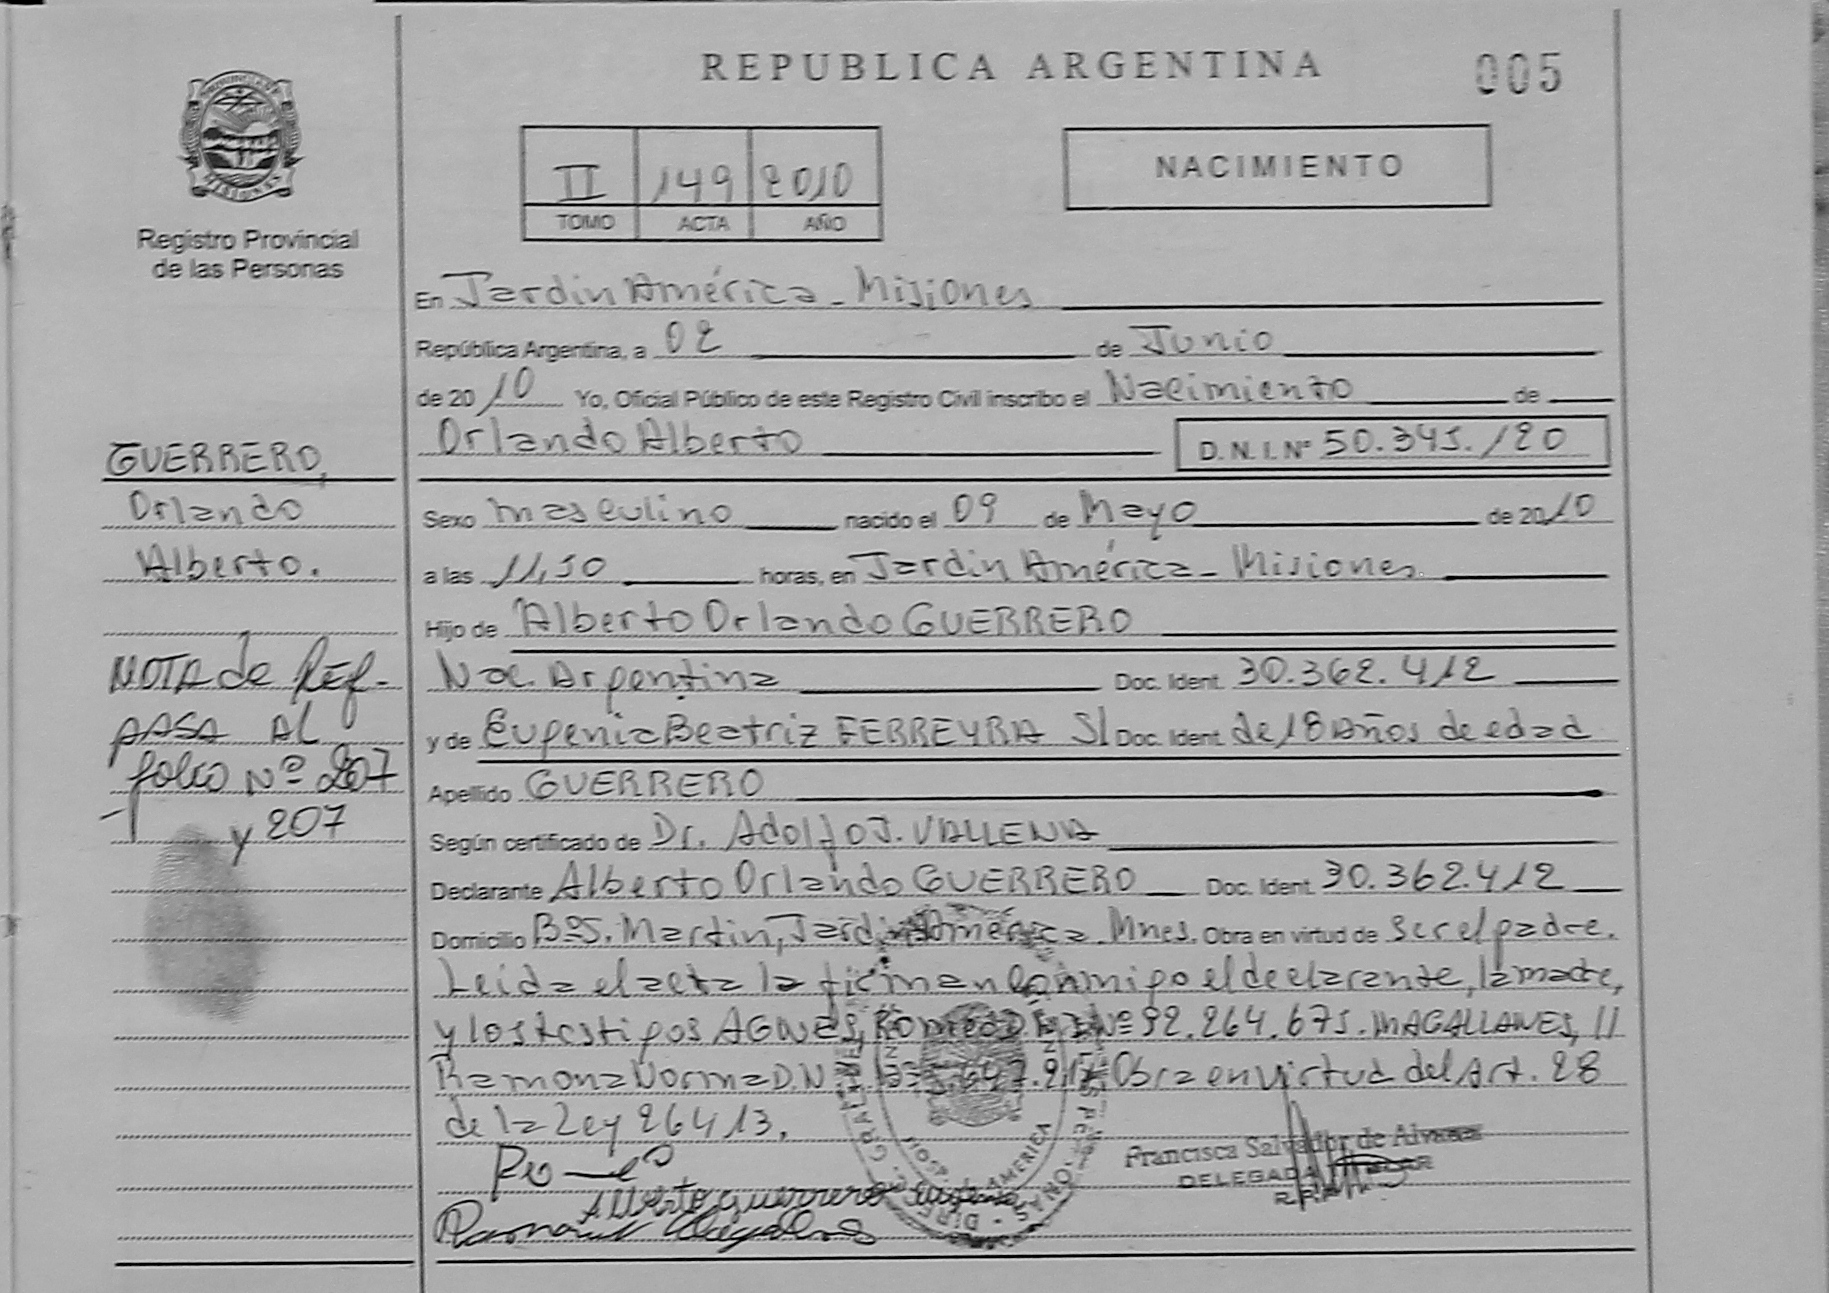 REPUBLICA ARGENTINA
005
II 149 2010
TOMO ACTA AÑO
NACIMIENTO
Registro Provincial
de las Personas
En Jardin América - Misiones
República Argentina, a 02 de Junio
de 20 10 Yo, Oficial Público de este Registro Civil inscribo el Nacimiento de
Orlando Alberto D.N.I. Nº 50.345.120
Sexo masculino nacido el 09 de Mayo de 20 10
a las 11,50 horas, en Jardin América - Misiones.
Hijo de Alberto Orlando GUERRERO
Nac. Argentina Doc. Ident. 30.362.412
y de Eugenia Beatriz FERREYRA S/ Doc. Ident. de 18 Años de edad
Apellido GUERRERO
Según certificado de Dr. Adolfo J. VALLENA
Declarante Alberto Orlando GUERRERO Doc. Ident. 30.362.412
Domicilio Bº S. Martin, Jardin América. Mnes. Obra en virtud de ser el padre.
Leida el acta la firman conmigo el declarante, la madre,
y los testigos AGNES, Romeo D.N.I Nº 92.264.675. MAGALLANES, //
Ramona Norma D.N Obra en virtud del Art. 28
de la Ley 26413.
GUERRERO,
Orlando
Alberto.
NOTA de Ref-
PASA AL
folio Nº 207
y 207
Alberto Guerrero
Francisca Salvador de
DELEGADA
AMERICA